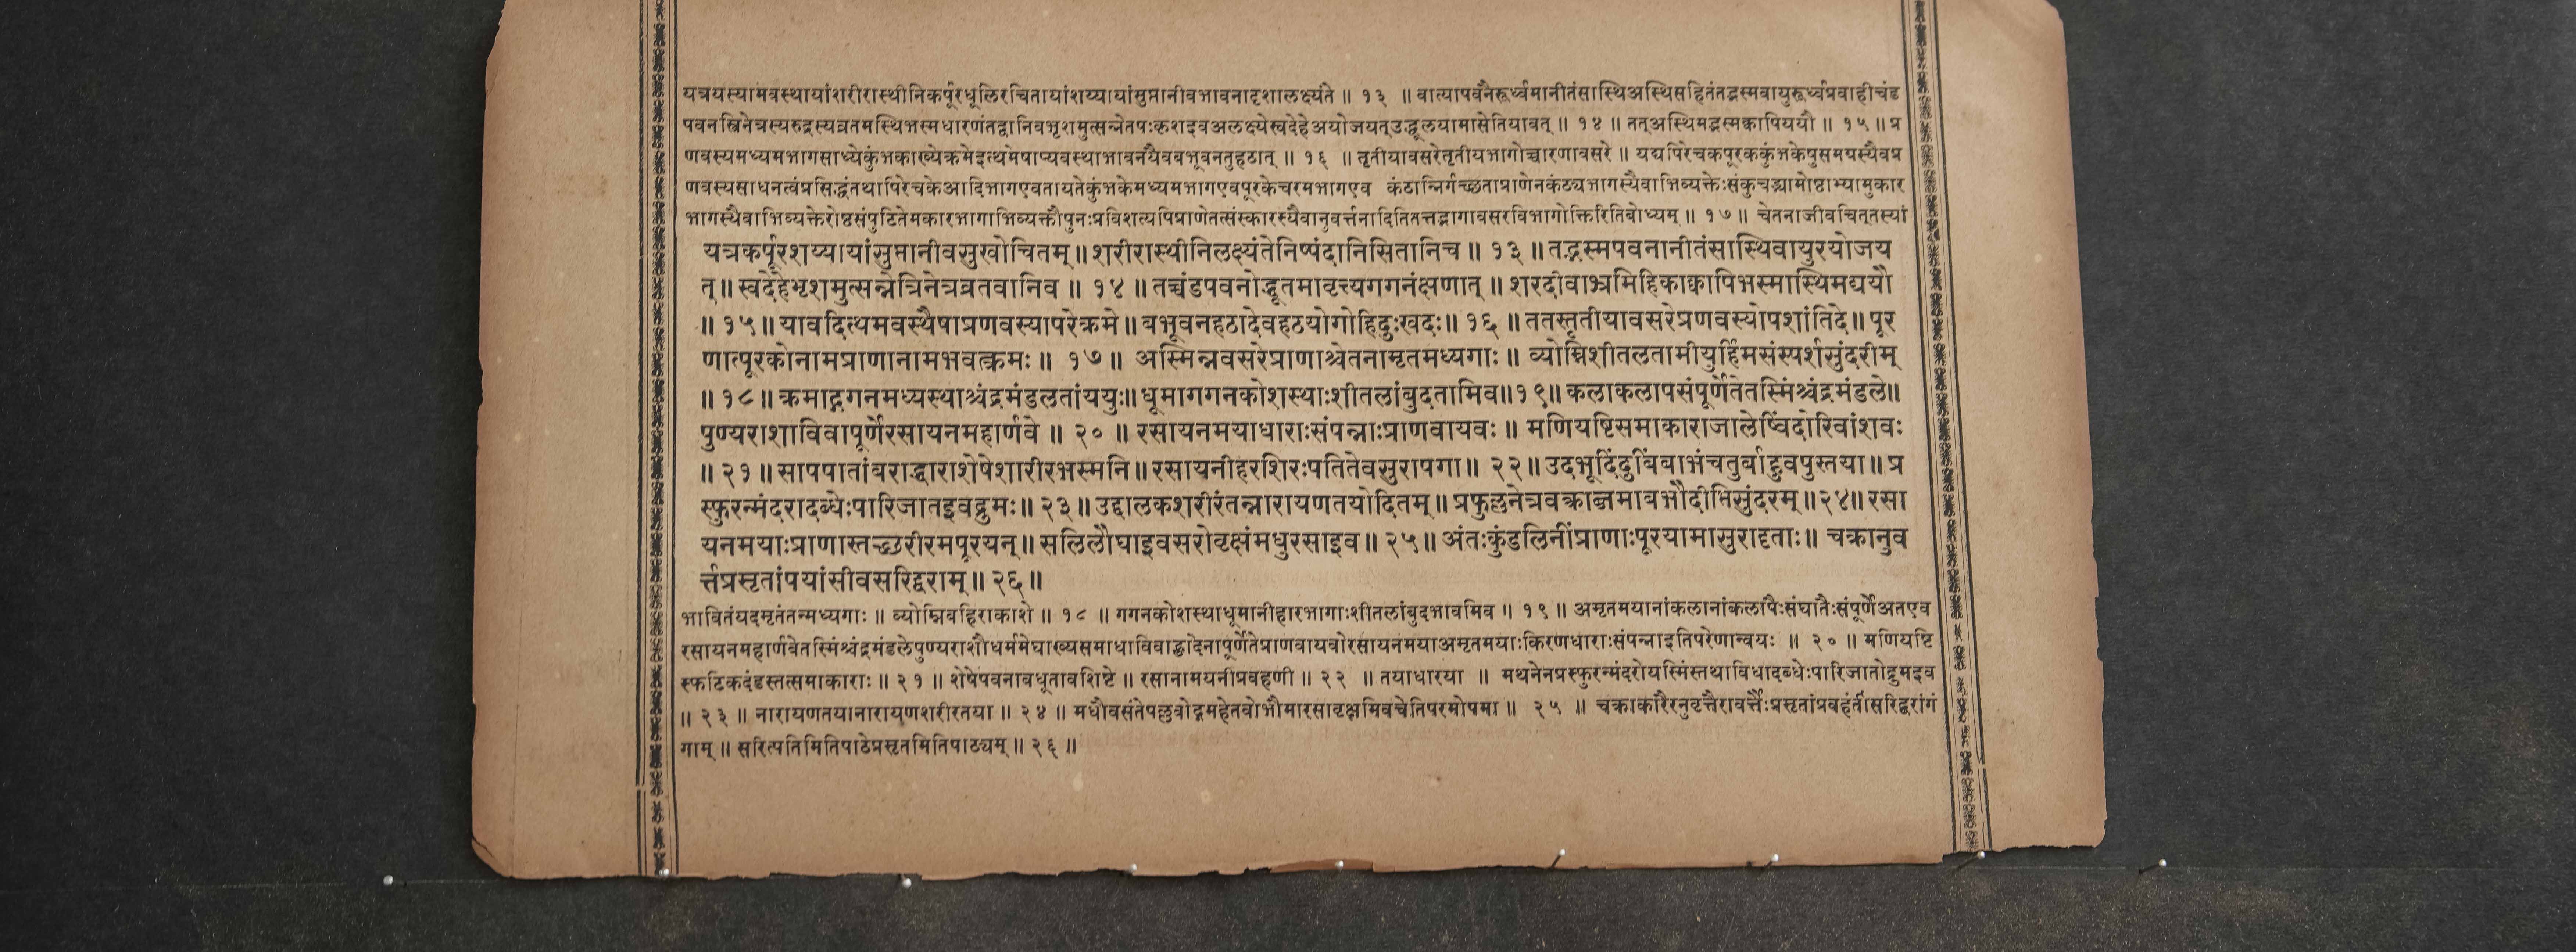 यत्रयस्यामवस्थायांशरीरास्थीनिकर्पूरधूलिरचितायांशय्यायांसुप्तानीवभावनादृशालक्ष्यंते ॥ १३ ॥ वात्यापवनैरूर्ध्वमानीतंसास्थिअस्थिसहितंतद्भस्मवायुरूर्ध्वप्रवाहीचंड
पवनस्त्रिनेत्रस्यरुद्रस्यव्रतमस्थिभस्मधारणंतद्वानिवभृशमुत्सन्नेतपःकृशइवअलक्ष्येस्वदेहेअयोजयत्उद्धूलयामासेतियावत् ॥ १४ ॥ तत्अस्थिमद्भस्मक्कापिययौ ॥ १५ ॥ प्र
णवस्यमध्यमभागसाध्येकुंभकाख्येक्रमेइत्थमेषाप्यवस्थाभावनयैवबभूवनतुहठात् ॥ १६ ॥ तृतीयावसरेतृतीयभागोच्चारणावसरे ॥ यद्यपिरेचकपूरककुंभकेषुसमग्रस्यैवप्र
णवस्यसाधनत्वंप्रसिद्धंतथापिरेचकेआदिभागएवतायतेकुंभकेमध्यमभागएवपूरकेचरमभागएव कंठान्निर्गच्छताप्राणेनकंठ्यभागस्यैवाभिव्यक्तेःसंकुचद्भ्यामोष्ठाभ्यामुकार
भागस्यैवाभिव्यक्तेरोष्ठसंपुटितेमकारभागाभिव्यक्तौपुनःप्रविशत्यपिप्राणेतत्संस्कारस्यैवानुवर्त्तनादितितत्तद्भागावसरविभागोक्तिरितिबोध्यम् ॥ १७ ॥ चेतनाजीवचित्तस्यां
यत्रकर्पूरशय्यायांसुप्तानीवसुखोचितम् ॥ शरीरास्थीनिलक्ष्यंतेनिष्पंदानिसितानिच ॥ १३ ॥ तद्भस्मपवनानीतंसास्थिवायुरयोजय
त् ॥ स्वदेहेभृशमुत्सन्नेत्रिनेत्रव्रतवानिव ॥ १४ ॥ तच्चंडपवनोद्धूतमावृत्त्यगगनंक्षणात् ॥ शरदीवाभ्रमिहिकाक्कापिभस्मास्थिमद्ययौ
॥ १५ ॥ यावदित्थमवस्थैषाप्रणवस्यापरेक्रमे ॥ बभूवनहठादेवहठयोगोहिदुःखदः ॥ १६ ॥ ततस्तृतीयावसरेप्रणवस्योपशांतिदे ॥ पूर
णात्पूरकोनामप्राणानामभवत्क्रमः ॥ १७ ॥ अस्मिन्नवसरेप्राणाश्चेतनामृतमध्यगाः ॥ व्योम्निशीतलतामीयुर्हिमसंस्पर्शसुंदरीम्
॥ १८ ॥ क्रमाद्गगनमध्यस्थाश्चंद्रमंडलतांययुः ॥ धूमागगनकोशस्थाःशीतलांबुदतामिव ॥ १९ ॥ कलाकलापसंपूर्णेतेतस्मिंश्चंद्रमंडले ॥
पुण्यराशाविवापूर्णेरसायनमहार्णवे ॥ २० ॥ रसायनमयाधाराःसंपन्नाःप्राणवायवः ॥ मणियष्टिसमाकाराजालेष्विंदोरिवांशवः
॥ २१ ॥ सापपातांबराद्धाराशेषेशारीरभस्मनि ॥ रसायनीहरशिरःपतितेवसुरापगा ॥ २२ ॥ उदभूदिंदुबिंबाभंचतुर्बाहुवपुस्तया ॥ प्र
स्फुरन्मंदरादब्धेःपारिजातइवद्रुमः ॥ २३ ॥ उद्दालकशरीरंतन्नारायणतयोदितम् ॥ प्रफुल्लनेत्रवक्काब्जमाबभौदीप्तिसुंदरम् ॥ २४ ॥ रसा
यनमयाःप्राणास्तच्छरीरमपूरयन् ॥ सलिलौघाइवसरोवृक्षंमधुरसाइव ॥ २५ ॥ अंतःकुंडलिनींप्राणाःपूरयामासुरादृताः ॥ चक्रानुव
र्त्तप्रसृतांपयांसीवसरिद्वराम् ॥ २६ ॥
भावितंयदमृतंतन्मध्यगाः ॥ व्योम्निबहिराकाशे ॥ १८ ॥ गगनकोशस्थाधूमानीहारभागाःशीतलांबुदभावमिव ॥ १९ ॥ अमृतमयानांकलानांकलापैःसंघातैःसंपूर्णेअतएव
रसायनमहार्णवेतस्मिंश्चंद्रमंडलेपुण्यराशौधर्ममेघाख्यसमाधाविवाह्लादेनापूर्णेतेप्राणवायवोरसायनमयाअमृतमयाःकिरणधाराःसंपन्नाइतिपरेणान्वयः ॥ २० ॥ मणियष्टि
स्फटिकदंडस्तत्समाकाराः ॥ २१ ॥ शेषेपवनावधूतावशिष्टे ॥ रसानामयनीप्रवहणी ॥ २२ ॥ तयाधारया ॥ मथनेनप्रस्फुरन्मंदरोयस्मिंस्तथाविधादब्धेःपारिजातोद्रुमइव
॥ २३ ॥ नारायणतयानारायणशरीरतया ॥ २४ ॥ मधौवसंतेपल्लवोद्गमहेतवोभौमारसावृक्षमिवचेतिपरमोपमा ॥ २५ ॥ चक्राकारैरनुवृत्तैरावर्त्तैःप्रसृतांप्रवहंतींसरिद्वरांगं
गाम् ॥ सरित्पतिमितिपाठेप्रसृतमितिपाठ्यम् ॥ २६ ॥